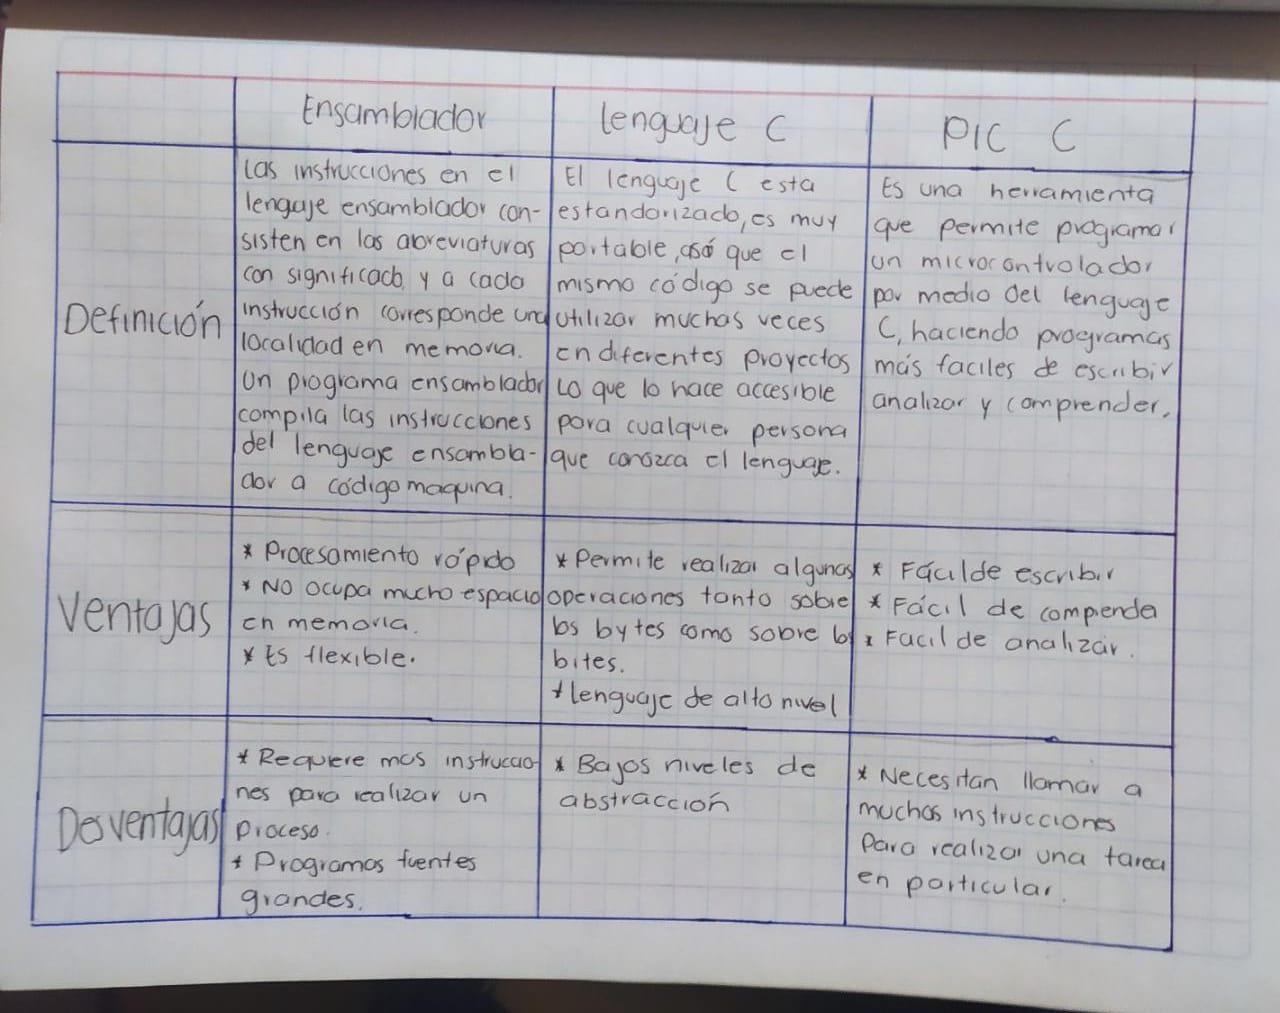 Ensamblador
lenguaje C
PIC C
Definición
Las instrucciones en el
lengaje ensamblador con-
sisten en las abreviaturas
con significado, y a cada
instrucción corresponde una
localidad en memoria.
Un programa ensamblador
compila las instrucciones
del lenguaje ensambla-
dor a código maquina.
El lenguaje C esta
estandarizado, es muy
portable, asá que el
mismo código se puede
utilizar muchas veces
en diferentes proyectos
Lo que lo hace accesible
para cualquier persona
que conozca el lenguaje.
Es una herramienta
que permite programar
un microcontrolador
por medio del lenguaje
C, haciendo programas
más faciles de escribir
analizar y comprender.
Ventajas
* Procesamiento rápido
* No ocupa mucho espacio
en memoria.
* Es flexible.
* Permite realizar algunas
operaciones tanto sobre
los bytes como sobre los
bites.
* lenguaje de alto nivel
* Fácil de escribir
* Fácil de comprender
* Facil de analizar.
Desventajas
* Requiere mas instruccio
nes para realizar un
proceso.
* Programas fuentes
grandes.
* Bajos niveles de
abstracción
* Necesitan llamar a
muchas instrucciones
Para realizar una tarea
en particular.